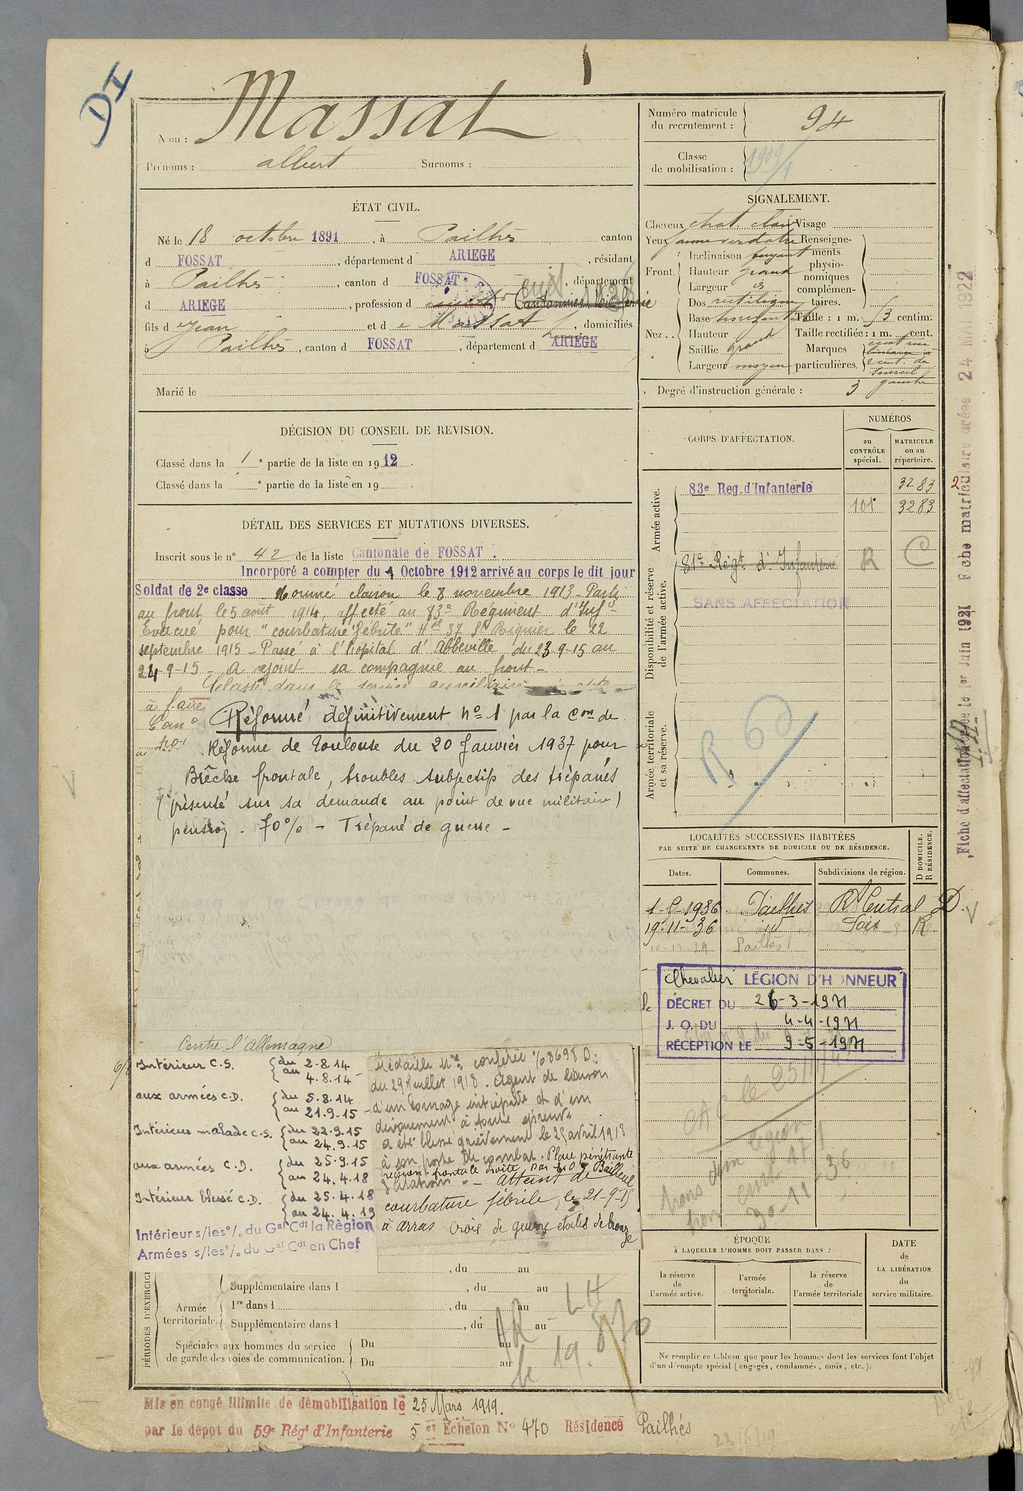 DI
Nom : Massat
Prénoms : albert Surnoms :
Numéro matricule du recrutement : 94
Classe de mobilisation : 1909/1
ÉTAT CIVIL.
Né le 18 octobre 1891, à Pailhès canton
d FOSSAT, département d ARIEGE, résidant
à Pailhès, canton d FOSSAT, département
d ARIEGE, profession d Cantonnier
fils d Jean et d e Massat, domiciliés
à Pailhès, canton d FOSSAT, département d ARIEGE
Marié le
SIGNALEMENT.
Cheveux chat. clair Visage
Yeux jaune verdâtre Renseignements physionomiques complémentaires.
Front Inclinaison fuyant
Hauteur grand
Largeur
Nez Dos rectiligne
Base horizontale Taille : 1 m. 53 centim.
Hauteur Taille rectifiée : 1 m. cent.
Saillie grand Marques particulières.
Largeur moyen
gauche
Degré d'instruction générale : 3
DÉCISION DU CONSEIL DE REVISION.
Classé dans la 1e partie de la liste en 1912.
Classé dans la e partie de la liste en 19
CORPS D'AFFECTATION.
NUMÉROS
au CONTRÔLE spécial.
MATRICULE ou au répertoire.
Armée active.
83e Reg. d'Infanterie 3283
101 3283
Disponibilité et réserve de l'armée active.
81e Régt d'Infanterie R C
SANS AFFECTATION
Armée territoriale et sa réserve.
R 60
DÉTAIL DES SERVICES ET MUTATIONS DIVERSES.
Inscrit sous le n° 42 de la liste Cantonale de FOSSAT.
Incorporé a compter du 9 Octobre 1912 arrivé au corps le dit jour
Soldat de 2e classe Nommé clairon le 8 novembre 1913. Parti
au front le 5 août 1914, affecté au 83e Régiment d'Infie
Evacué pour "courbature fébrile" Hal 37 St Riquier le 22
septembre 1915 - Passé à l'hôpital d'Abbeville du 23-9-15 au
24-9-15 - A rejoint sa compagnie au front -
Classé dans le service auxiliaire
à faire
Réformé définitivement n° 1 par la Con de
Réforme de Toulouse du 20 Janvier 1937 pour
Brêche frontale, troubles subjectifs des trépanés
(présenté sur sa demande au point de vue militaire)
pension 70% - Trépané de guerre -
LOCALITÉS SUCCESSIVES HABITÉES
PAR SUITE DE CHANGEMENTS DE DOMICILE OU DE RÉSIDENCE.
Dates. Communes. Subdivisions de région. D DOMICILE. R RÉSIDENCE.
1-9-1936 Pailhès Rt Central D.
19-11-36 id Foix R
Pailhès
Chevalier LÉGION D'HONNEUR
DÉCRET DU 26-3-1971
J. O. DU 4-4-1971
RÉCEPTION LE 9-5-1971
Contre l'Allemagne
Intérieur C.S. du 2-8.14 au 4.8.14
aux armées C.D. du 5.8.14 au 21.9-15
Intérieur malade C.S. du 22.9.15 au 24.9.15
aux armées C.D. du 25.9.15 au 24.4.18
Intérieur blessé C.D. du 25.4.18 au 24.4.19
Intérieur s/les o/. du Gal Cdt la Région
Armées s/les o/. du Gal Cdt en Chef
Médaille Mre conférée o/ 8698 D.
du 29 Juillet 1918. Agent de liaison
d'un courage intrépide et d'un
dévouement à toute épreuve
a été blessé grièvement le 25 avril 1918
à son poste de combat. Plaie pénétrante
région frontale droite par Bailleul
- Atteint de
courbature fébrile, le 21-9-15
à arras Croix de guerre étoile de bronze
30-11-36
ÉPOQUE
À LAQUELLE L'HOMME DOIT PASSER DANS :
la réserve de l'armée active.
l'armée territoriale.
la réserve de l'armée territoriale
DATE de LA LIBÉRATION du service militaire.
Ne remplir ce tableau que pour les hommes dont les services font l'objet
d'un décompte spécial (engagés, condamnés, omis, etc.).
PÉRIODES D'EXERCICES
, du au
Supplémentaire dans l , du au
Armée territoriale 1re dans l , du au
Supplémentaire dans l , du au
Spéciales aux hommes du service de garde des voies de communication. Du au
Du au
AR LH
le 19.
Mis en congé illimité de démobilisation le 25 Mars 1919.
par le dépot du 59e Régt d'Infanterie 5 er Echelon N° 470 Résidence Pailhès
Fiche d'affectation créée le 1er Juin 1921 Fiche matriculaire créée 24 MAI 1922